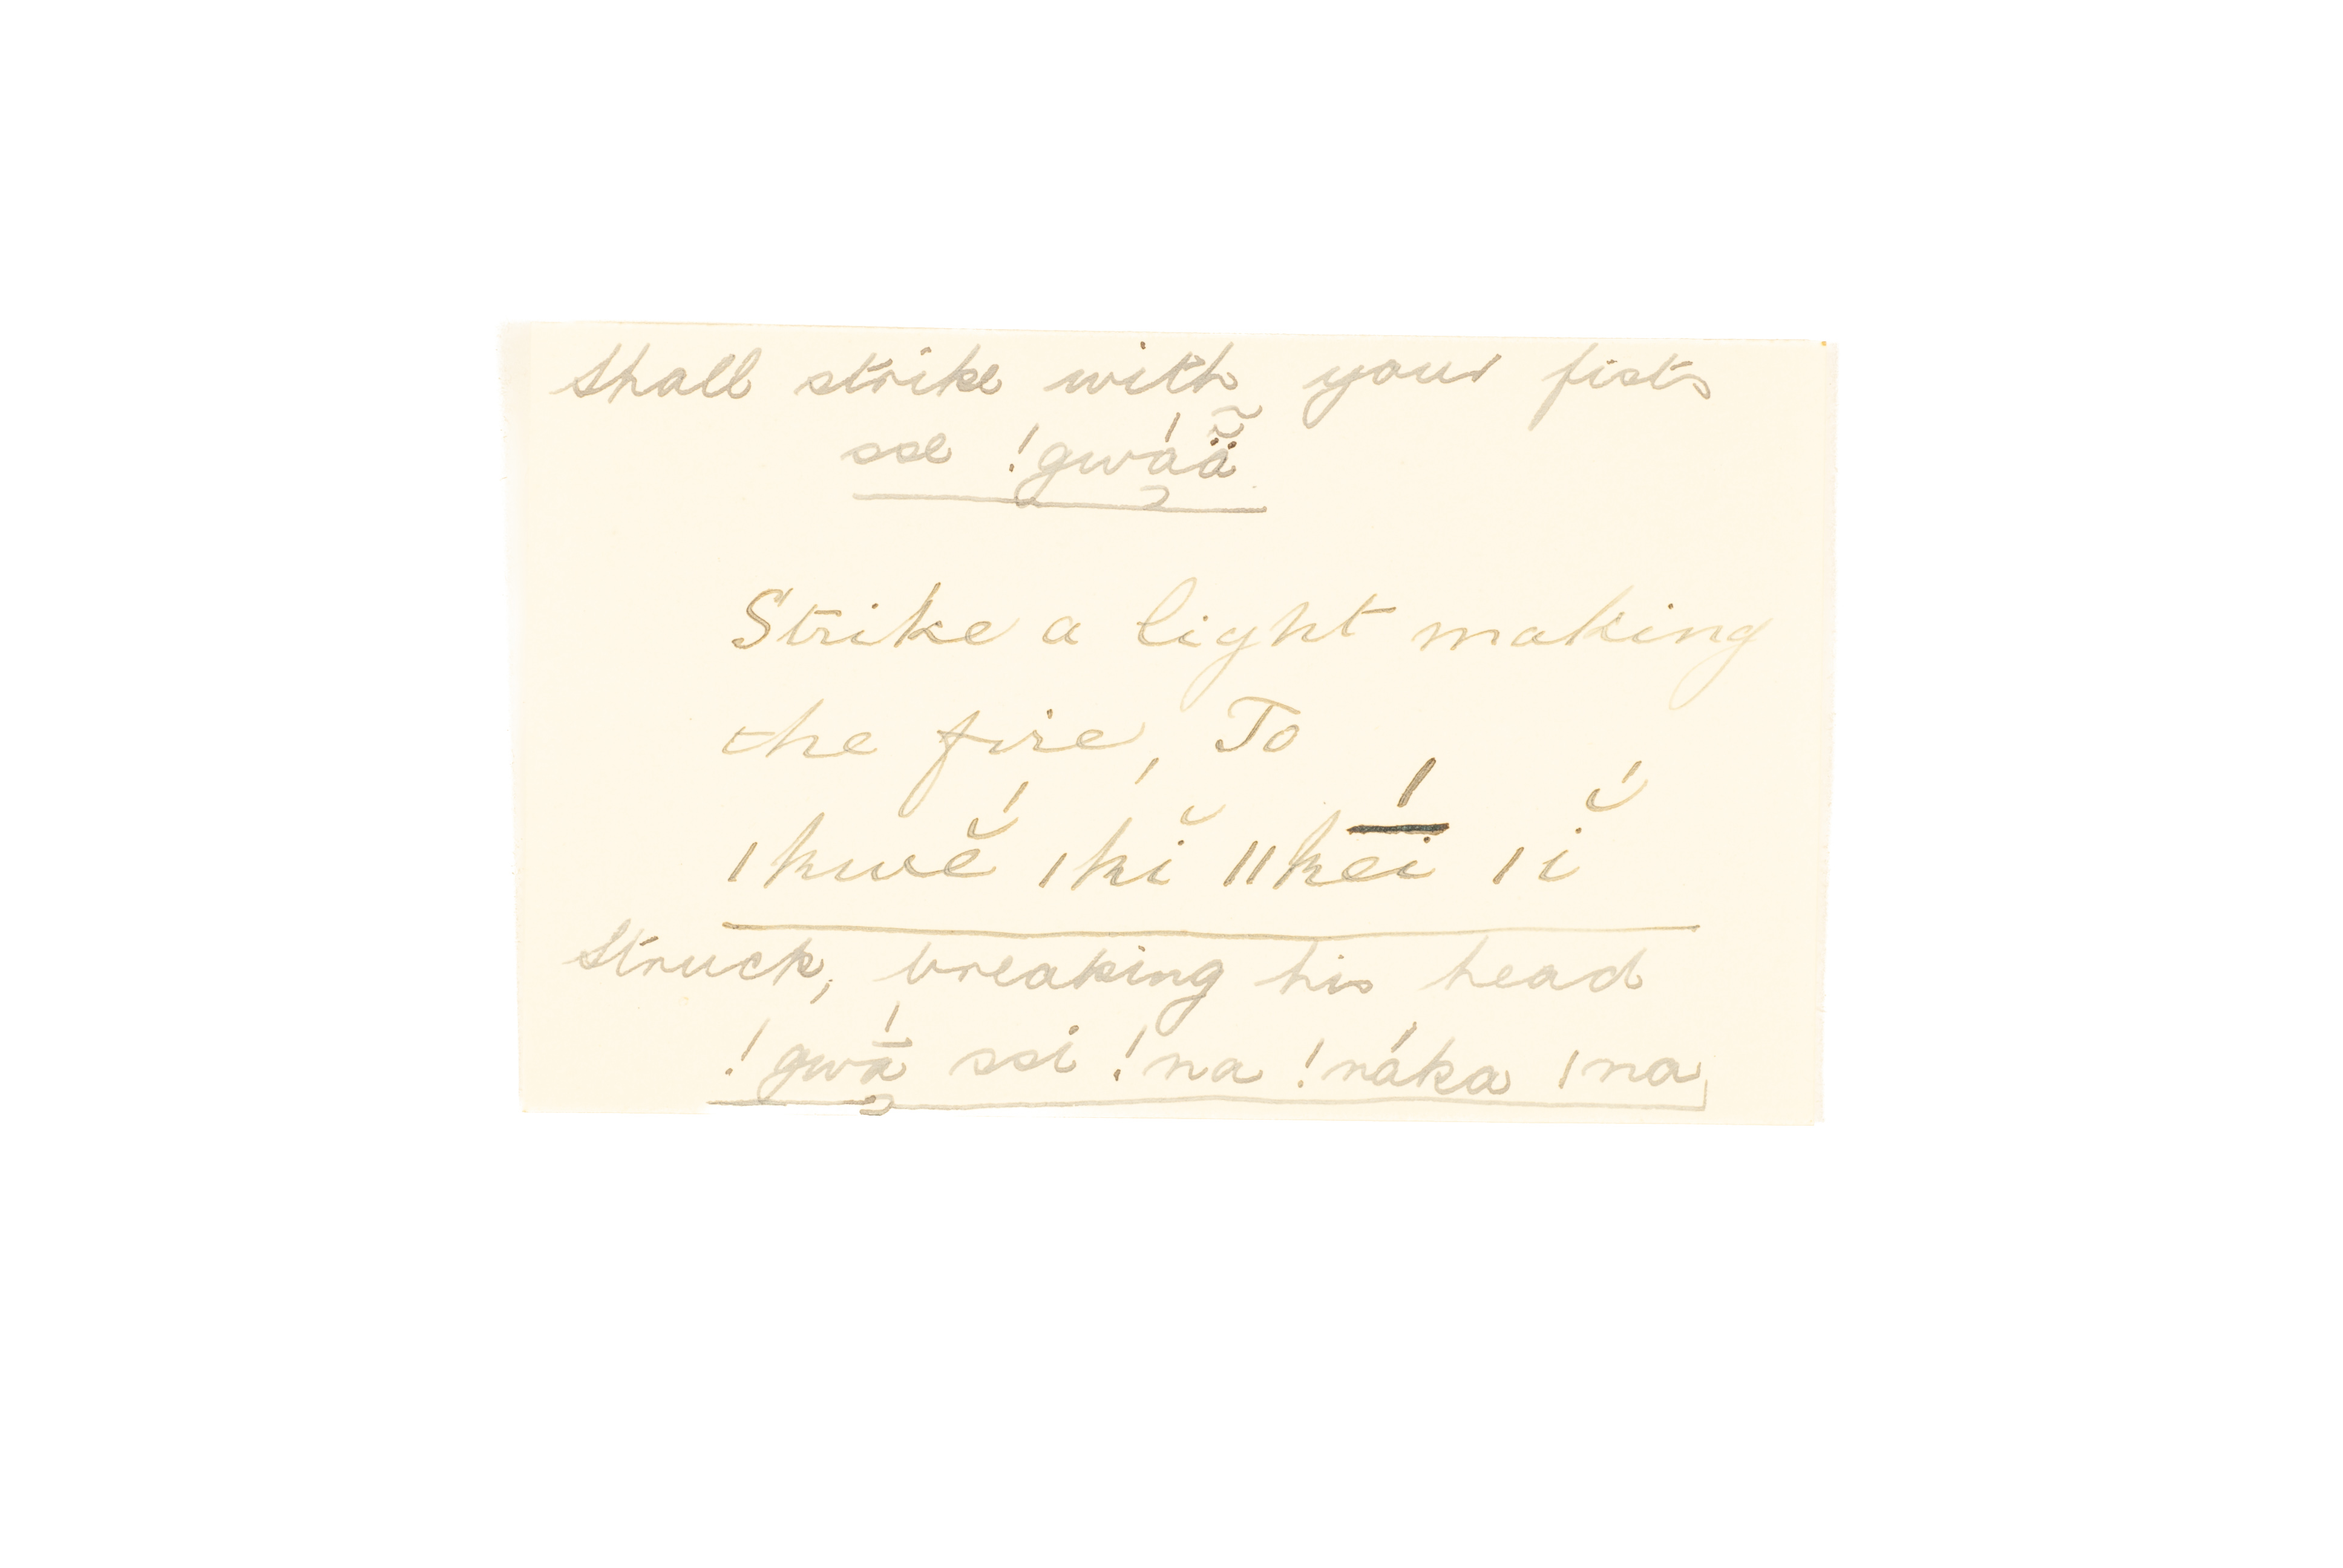 shall strike with your fists
sse !gwá̰ã̤̆
Strike a light making
the fire, To
|hwĕ́ |hĭ ||hé̄i |ĭ́
Struck, breaking his head
!gwā̰́ ssi !na !náka |na